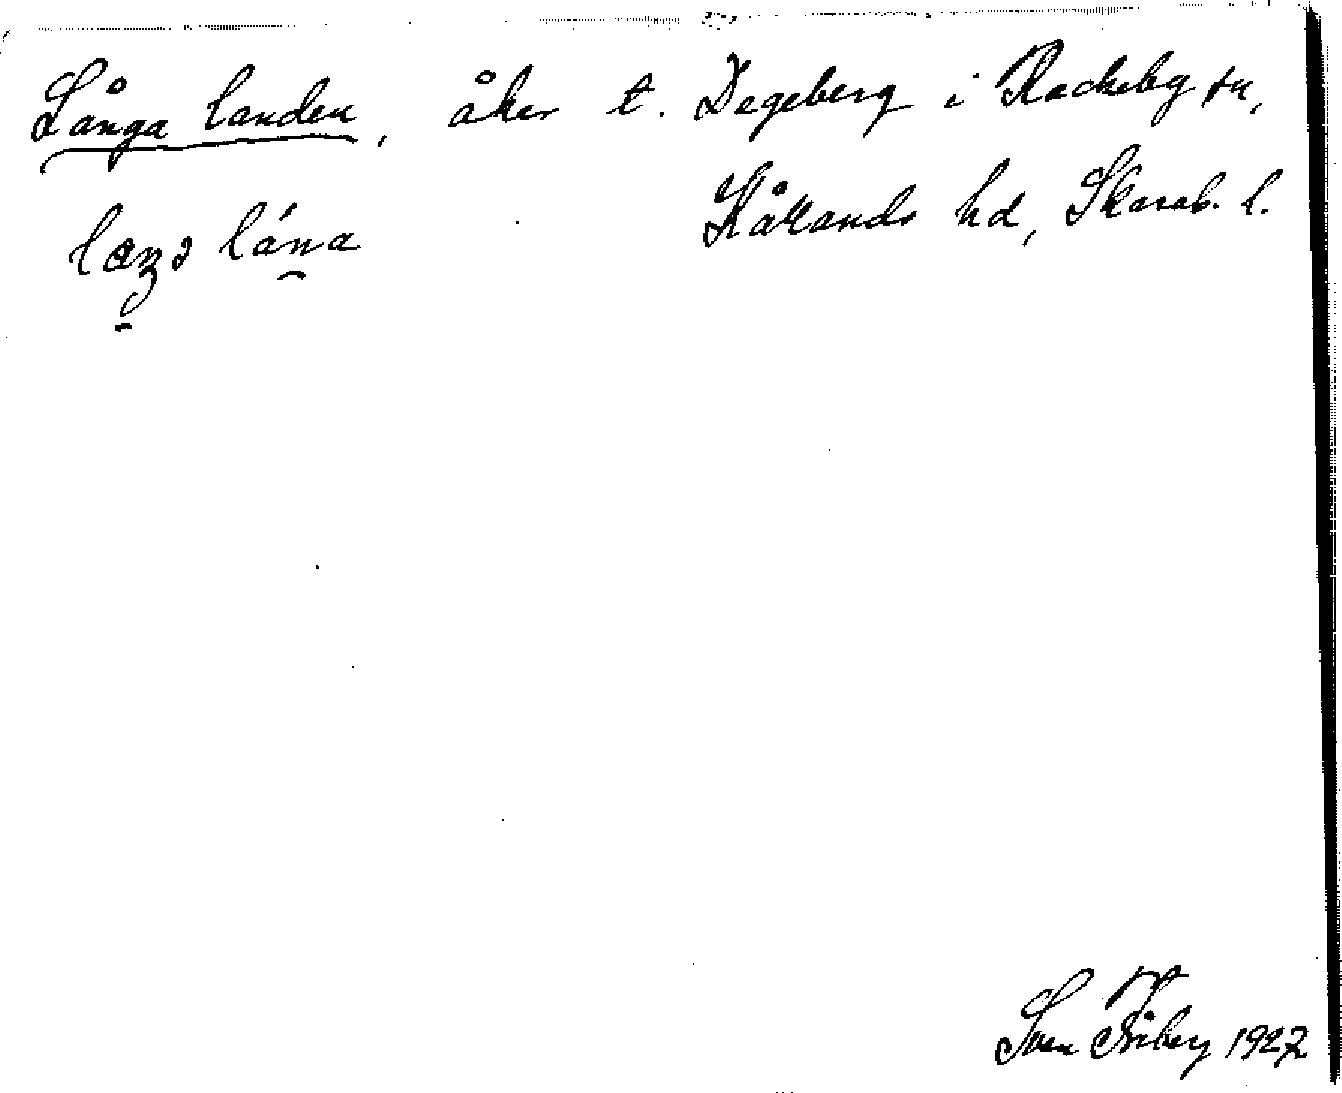 Långa landen, åker t. Degeberg i Rackeby sn,
Kållands hd, Skarab. l.
Sven Friberg 1927